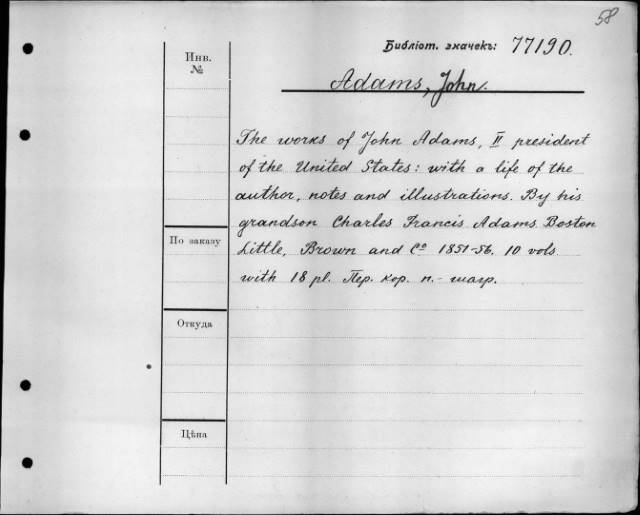 58
Библіот. значекъ: 77190.
Инв.
№
Adams, John.
The works of John Adams, II president
of the United States: with a life of the
author, notes and illustrations. By his
grandson Charles Francis Adams. Boston
Little, Brown and Cº 1851-56. 10 vols
with 18 pl. Пер. кор. п.- шагр.
По заказу
Откуда
Цѣна